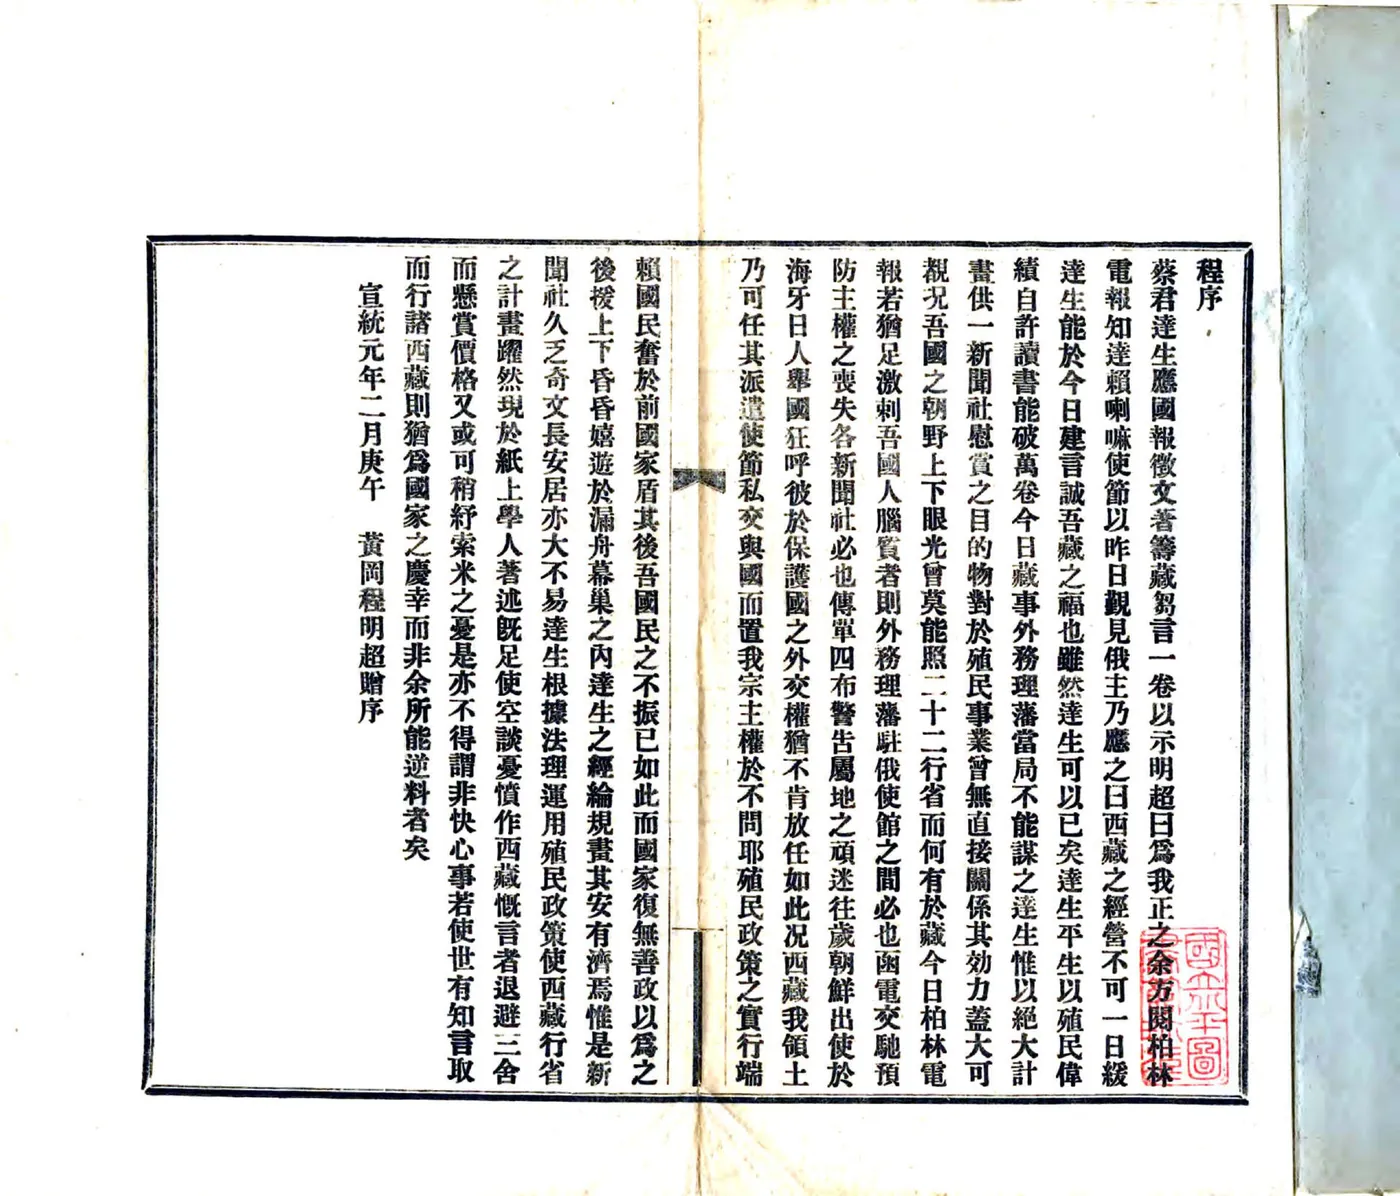 程序
蔡君達生應國報徵文著籌藏芻言一卷以示明超曰爲我正之余方閱柏林
電報知達賴喇嘛使節以昨日觀見俄主乃應之曰西藏之經營不可一日緩
達生能於今日建言誠吾藏之福也雖然達生可以已矣達生平生以殖民偉
績自許讀書能破萬卷今日藏事外務理藩當局不能謀之達生惟以絕大計
畫供一新聞社慰賞之目的物對於殖民事業曾無直接關係其効力蓋大可
覩况吾國之朝野上下眼光曾莫能照二十二行省而何有於藏今日柏林電
報若猶足激刺吾國人腦質者則外務理藩駐俄使館之間必也函電交馳預
防主權之喪失各新聞社必也傳單四布警告屬地之頑迷往歲朝鮮出使於
海牙日人舉國狂呼彼於保護國之外交權猶不肯放任如此况西藏我領土
乃可任其派遣使節私交與國而置我宗主權於不問耶殖民政策之實行端
賴國民奮於前國家盾其後吾國民之不振已如此而國家復無善政以爲之
後援上下昏昏嬉遊於漏舟幕巢之內達生之經綸規畫其安有濟焉惟是新
聞社久乏奇文長安居亦大不易達生根據法理運用殖民政策使西藏行省
之計畫躍然現於紙上學人著述旣足使空談憂憤作西藏慨言者退避三舍
而懸賞價格又或可稍紓索米之憂是亦不得謂非快心事若使世有知言取
而行諸西藏則猶爲國家之慶幸而非余所能逆料者矣
宣統元年二月庚午 黃岡程明超贈序